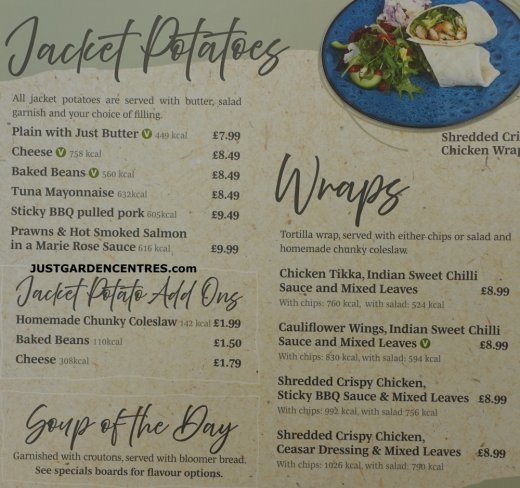 Jacket Potatoes
All jacket potatoes are served with butter, salad
garnish and your choice of filling.
Plain with Just Butter V 449 kcal £7.99
Cheese V 758 kcal £8.49
Baked Beans V 560 kcal £8.49
Tuna Mayonnaise 632kcal £8.49
Sticky BBQ pulled pork 605kcal £9.49
Prawns & Hot Smoked Salmon
in a Marie Rose Sauce 616 kcal £9.99
JUSTGARDENCENTRES.com
Jacket Potato Add Ons
Homemade Chunky Coleslaw 142 kcal £1.99
Baked Beans 110kcal £1.50
Cheese 308kcal £1.79
Soup of the Day
Garnished with croutons, served with bloomer bread.
See specials boards for flavour options.
Shredded Cri
Chicken Wrap
Wraps
Tortilla wrap, served with either chips or salad and
homemade chunky coleslaw.
Chicken Tikka, Indian Sweet Chilli
Sauce and Mixed Leaves £8.99
With chips: 760 kcal, with salad: 524 kcal
Cauliflower Wings, Indian Sweet Chilli
Sauce and Mixed Leaves V £8.99
With chips: 830 kcal, with salad: 594 kcal
Shredded Crispy Chicken,
Sticky BBQ Sauce & Mixed Leaves £8.99
With chips: 992 kcal, with salad 756 kcal
Shredded Crispy Chicken,
Ceasar Dressing & Mixed Leaves £8.99
With chips: 1026 kcal, with salad: 790 kcal